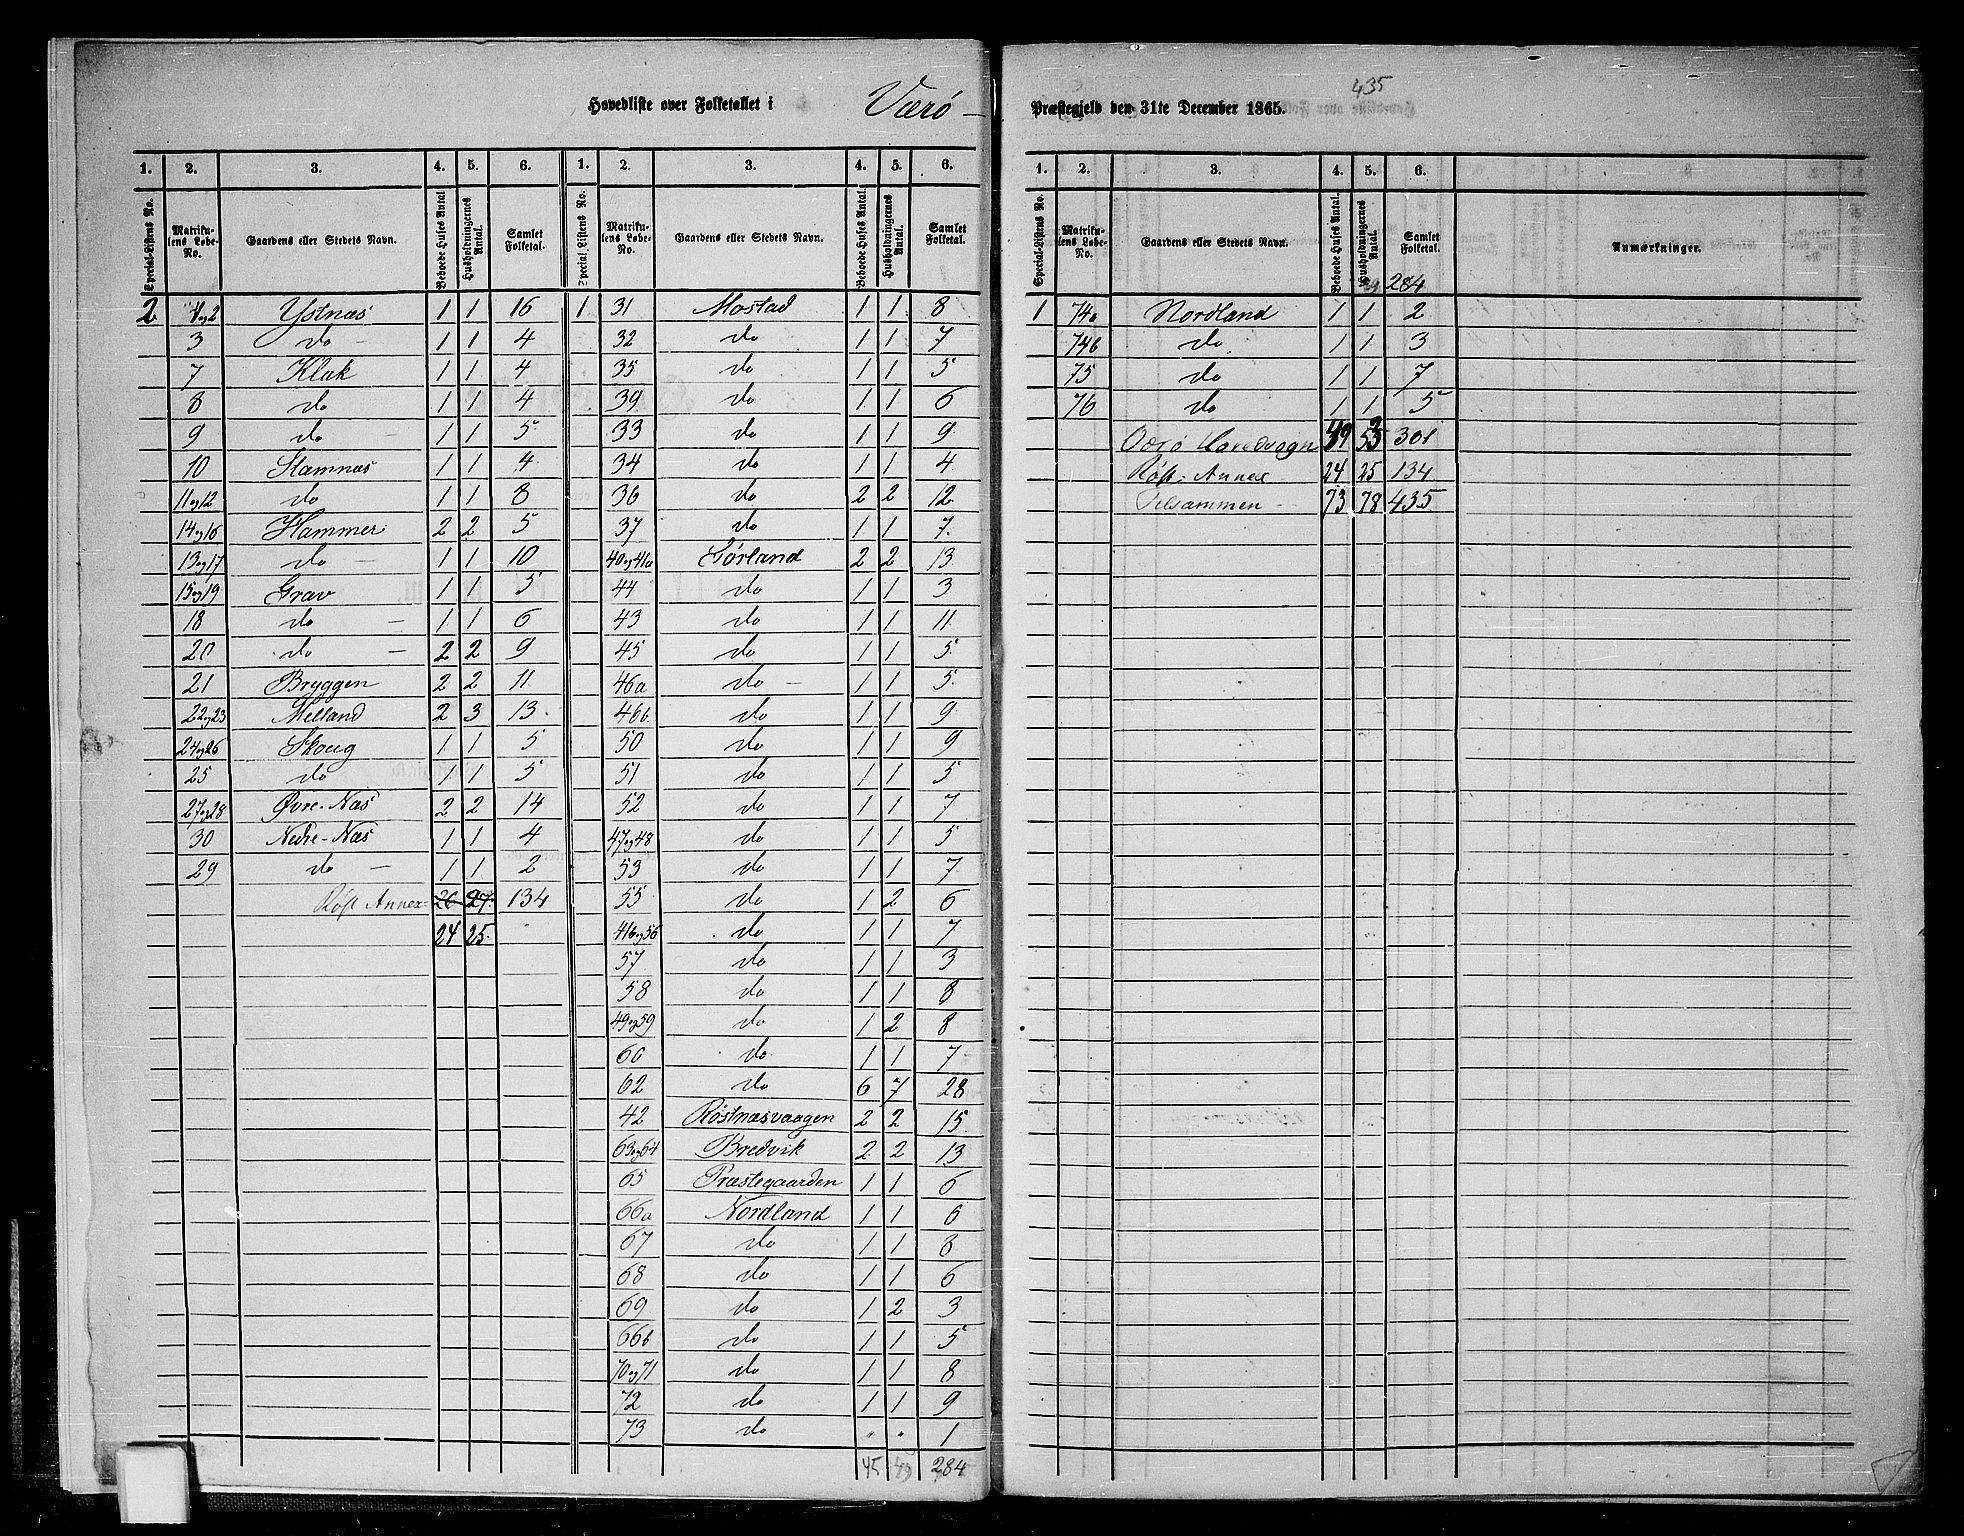 435
Hovedliste over Folketallet i Værø Præstegjeld den 31te December 1865.
1. 2. 3. 4. 5. 6. 1. 2. 3. 4. 5. 6.
Special-Listens No. Matrikulens Løbe-No. Gaardens eller Stedets Navn. Beboede Huses Antal. Husholdningernes Antal. Samlet Folketal. Special-Listens No. Matrikulens Løbe-No. Gaardens eller Stedets Navn. Beboede Huses Antal. Husholdningernes Antal. Samlet Folketal.
2 1og2 Ystnæs 1 1 16 1 31 Mostad 1 1 8
3 do - 1 1 4 32 do 1 1 7
7 Klak 1 1 4 35 do 1 1 5
8 do 1 1 4 39 do 1 1 6
9 do - 1 1 5 33 do 1 1 9
10 Stamnæs 1 1 4 34 do 1 1 4
11og12 do 1 1 8 36 do 2 2 12
14og16 Hammer 2 2 5 37 do 1 1 7
13og17 do - 1 1 10 40og41a Sørland 2 2 13
15og19 Grav 1 1 5 44 do 1 1 3
18 do - 1 1 6 43 do 1 1 11
20 do - 2 2 9 45 do 1 1 5
21 Bryggen 2 2 11 46a do - 1 1 5
22og23 Melland 2 3 13 46b do 1 1 9
24og26 Skoug 1 1 5 50 do 1 1 9
25 do 1 1 5 51 do 1 1 5
27og28 Øvre-Næs 2 2 14 52 do 1 1 7
30 Nedre-Næs 1 1 4 47og48 do 1 1 5
29 do - 1 1 2 53 do 1 1 7
Røst Annex 26 27 134 55 do 1 2 6
24 25 41bog56 do 1 1 7
57 do 1 1 3
58 do 1 1 8
49og59 do 1 2 8
60 do 1 1 7
62 do 6 7 28
42 Røstnæsvaagen 2 2 15
63og64 Bredvik 2 2 13
65 Præstegaarden 1 1 6
66a Nordland 1 1 6
67 do 1 1 8
68 do 1 1 6
69 do 1 2 3
66b do 1 1 5
70og71 do 1 1 8
72 do 1 1 9
73 do " " 1
45 49 284
1. 2. 3. 4. 5. 6.
Special-Listens No. Matrikulens Løbe-No. Gaardens eller Stedets Navn. Beboede Huses Antal. Husholdningernes Antal. Samlet Folketal. Anmærkninger.
284
1 74a Nordland 1 1 2
74b do 1 1 3
75 do 1 1 7
76 do 1 1 5
Værø Hovedsogn 49 53 301
Røst Annex 24 25 134
Tilsammen 73 78 435